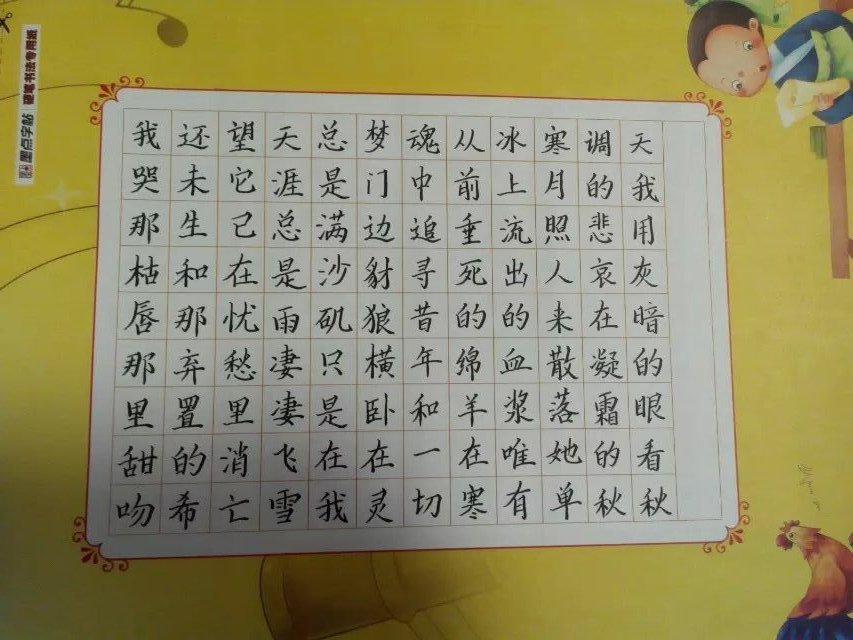 我哭那枯唇那里甜吻
还未生和那弃置的希
望它己在忧愁里消亡
天涯总是雨凄凄飞雪
总是满沙矶只是在我
梦门边豺狼横卧在灵
魂中追寻昔年和一切
从前垂死的绵羊在寒
冰上流出的血浆唯有
寒月照人来散落她单
调的悲哀在凝霜的秋
天我用灰暗的眼看秋
墨点字帖 硬笔书法专用纸